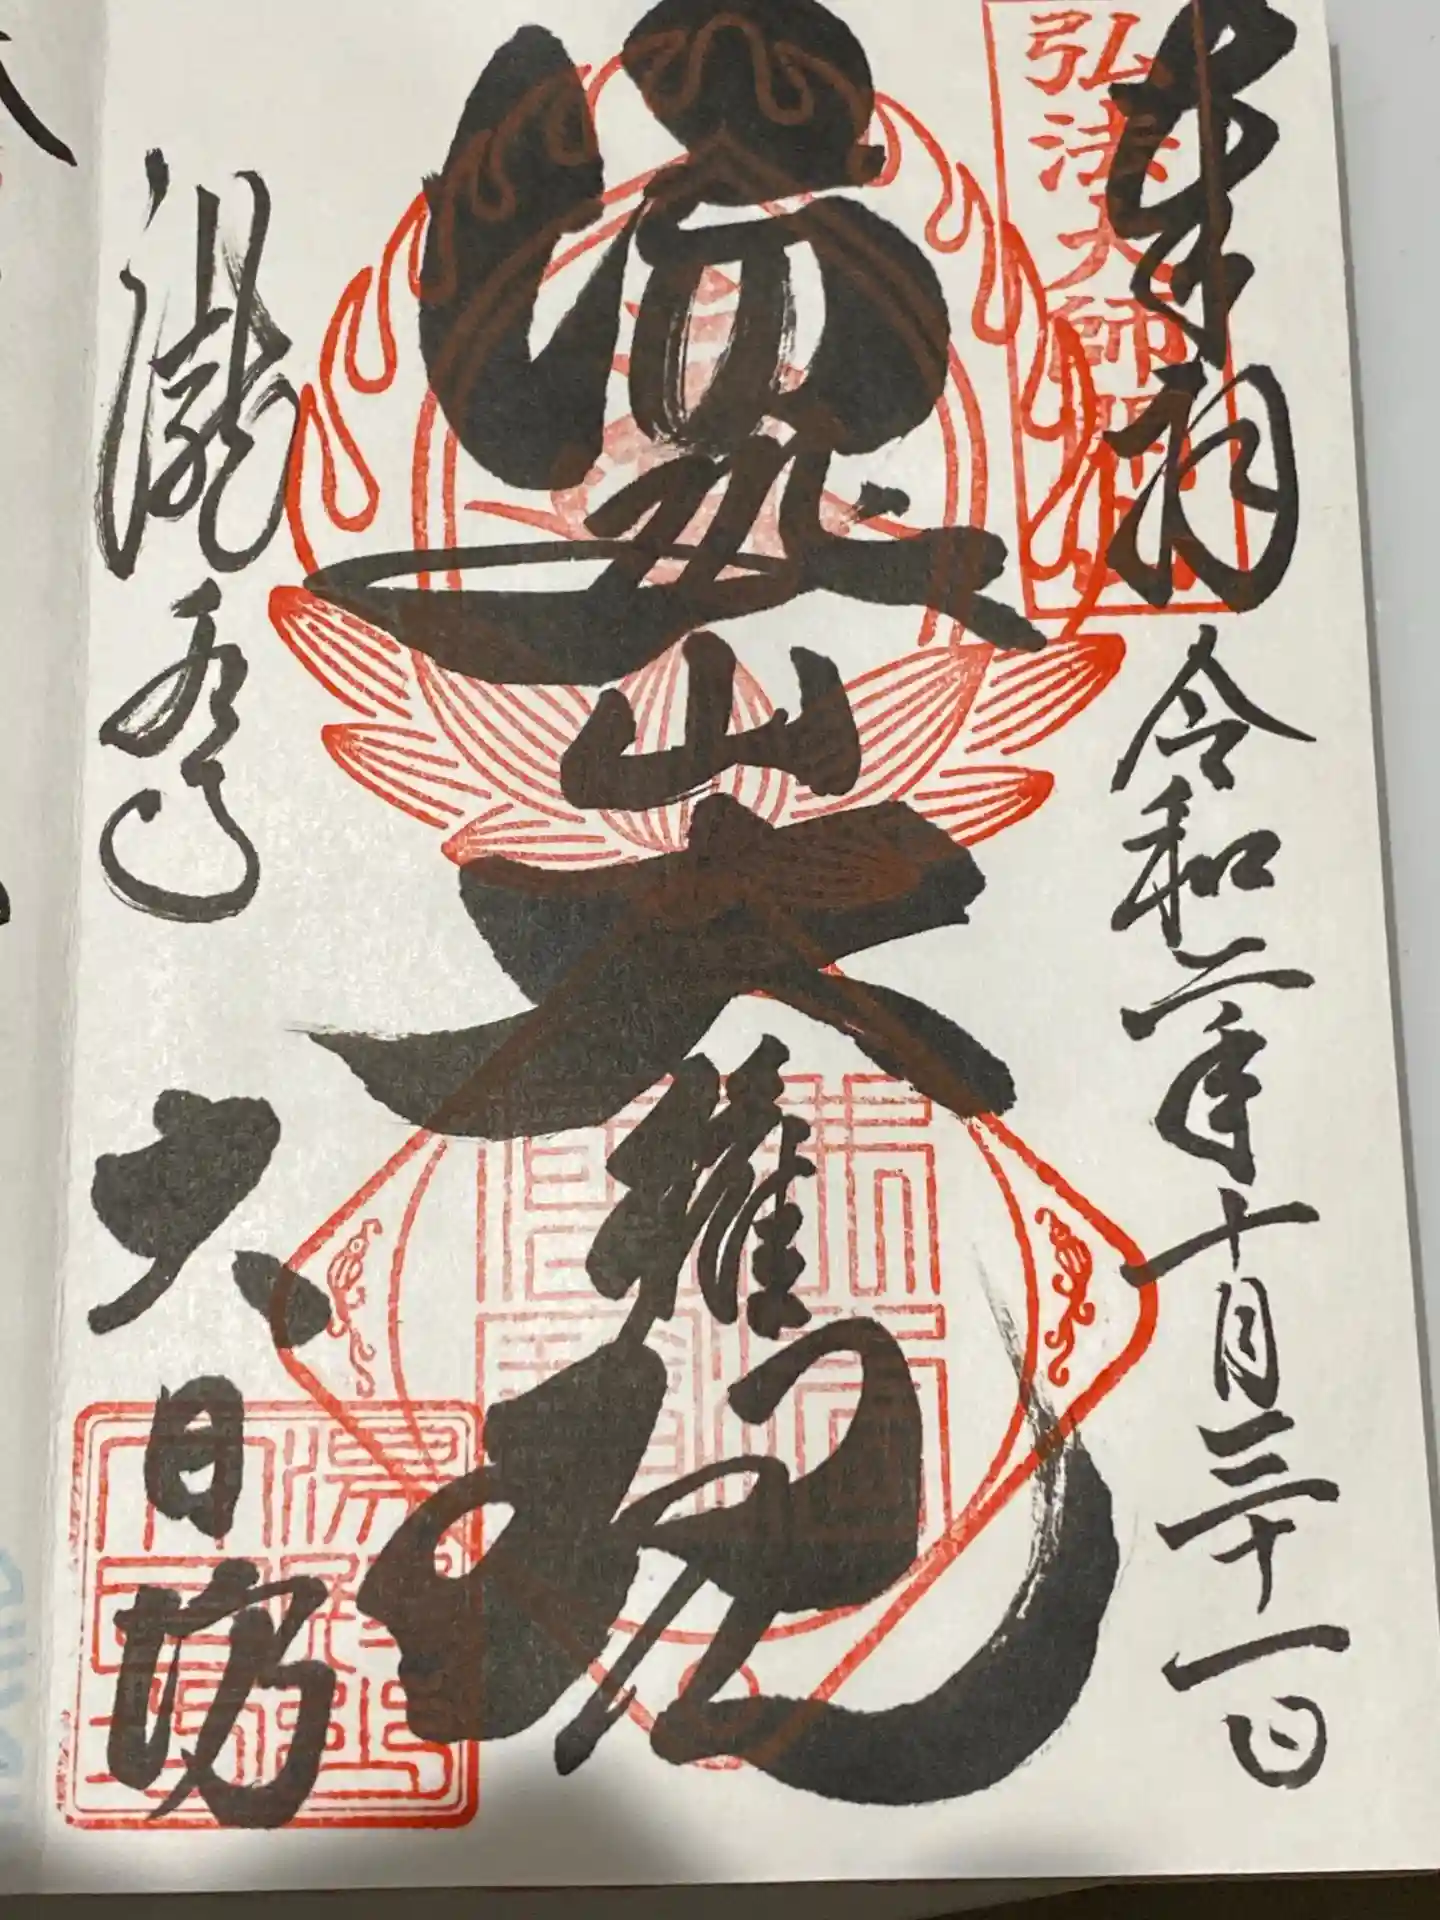 奉拝 令和二年十月三十一日
弘法大師開
湯殿山大権現
瀧水寺 大日坊
湯殿山
大日坊